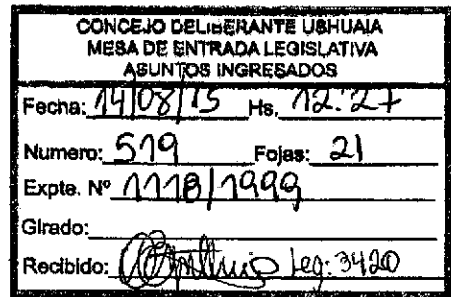 CONCEJO DELIBERANTE USHUAIA
MESA DE ENTRADA LEGISLATIVA
ASUNTOS INGRESADOS
Fecha: 14/08/15 Hs. 12:27
Numero: 519 Fojas: 21
Expte. Nº 1118/1999
Girado:
Recibido: Leg: 3420